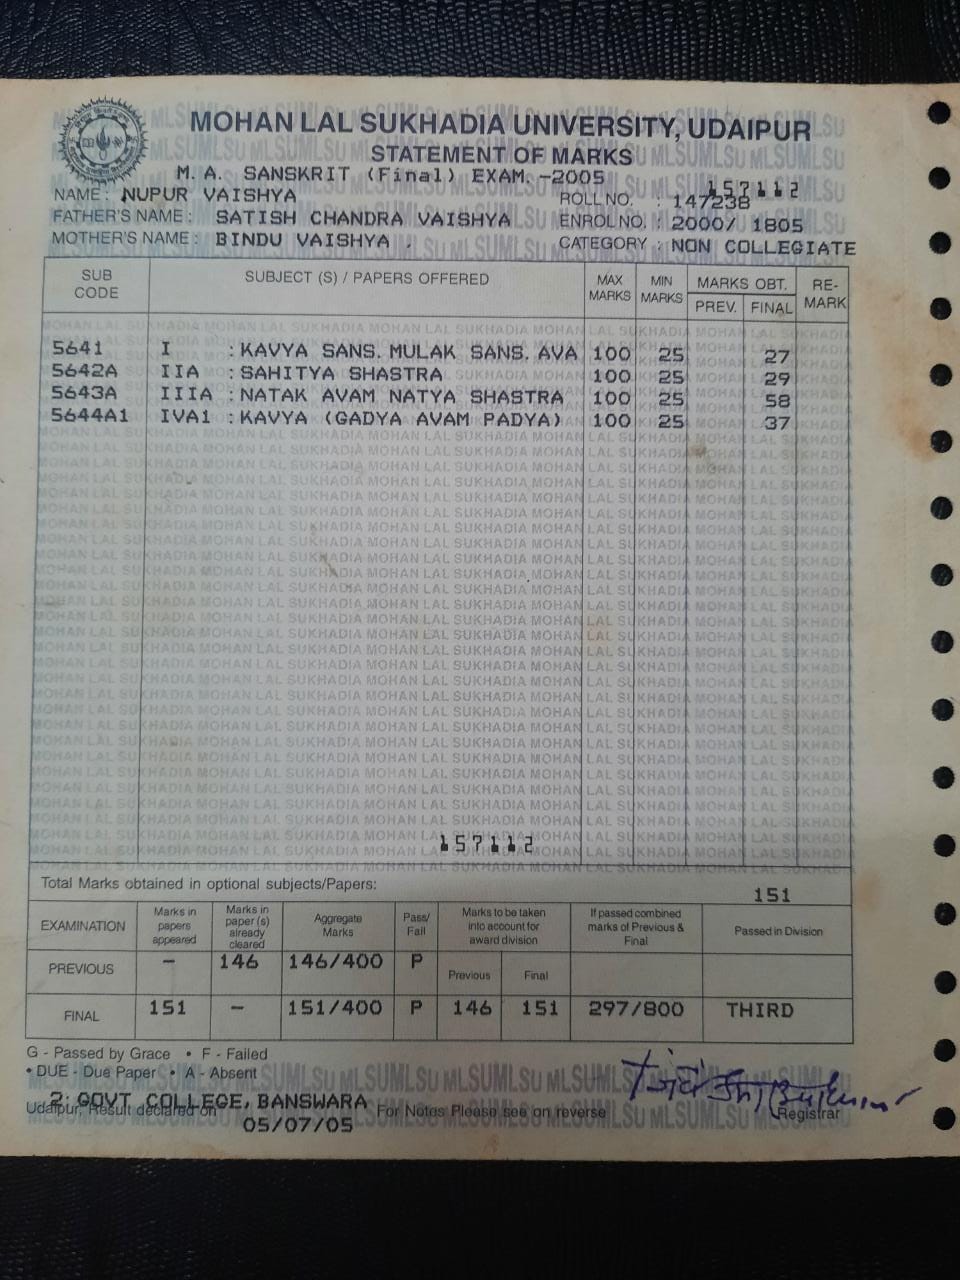 MOHAN LAL SUKHADIA UNIVERSITY, UDAIPUR
STATEMENT OF MARKS
M. A. SANSKRIT (Final) EXAM. -2005
157112
NAME : NUPUR VAISHYA ROLL NO. : 147238
FATHER'S NAME : SATISH CHANDRA VAISHYA ENROL NO. : 2000/ 1805
MOTHER'S NAME : BINDU VAISHYA . CATEGORY : NON COLLEGIATE
SUB CODE SUBJECT (S) / PAPERS OFFERED MAX MARKS MIN MARKS MARKS OBT. PREV. FINAL RE-MARK
5641 I : KAVYA SANS. MULAK SANS. AVA 100 25 27
5642A IIA : SAHITYA SHASTRA 100 25 29
5643A IIIA : NATAK AVAM NATYA SHASTRA 100 25 58
5644A1 IVA1 : KAVYA (GADYA AVAM PADYA) 100 25 37
157112
Total Marks obtained in optional subjects/Papers: 151
EXAMINATION Marks in papers appeared Marks in paper (s) already cleared Aggregate Marks Pass/Fail Marks to be taken into account for award division Previous Final If passed combined marks of Previous & Final Passed in Division
PREVIOUS – 146 146/400 P
FINAL 151 – 151/400 P 146 151 297/800 THIRD
G - Passed by Grace • F - Failed
• DUE - Due Paper • A - Absent
2: GOVT COLLEGE, BANSWARA
Udaipur, Result declared on 05/07/05 For Notes Please see on reverse Registrar